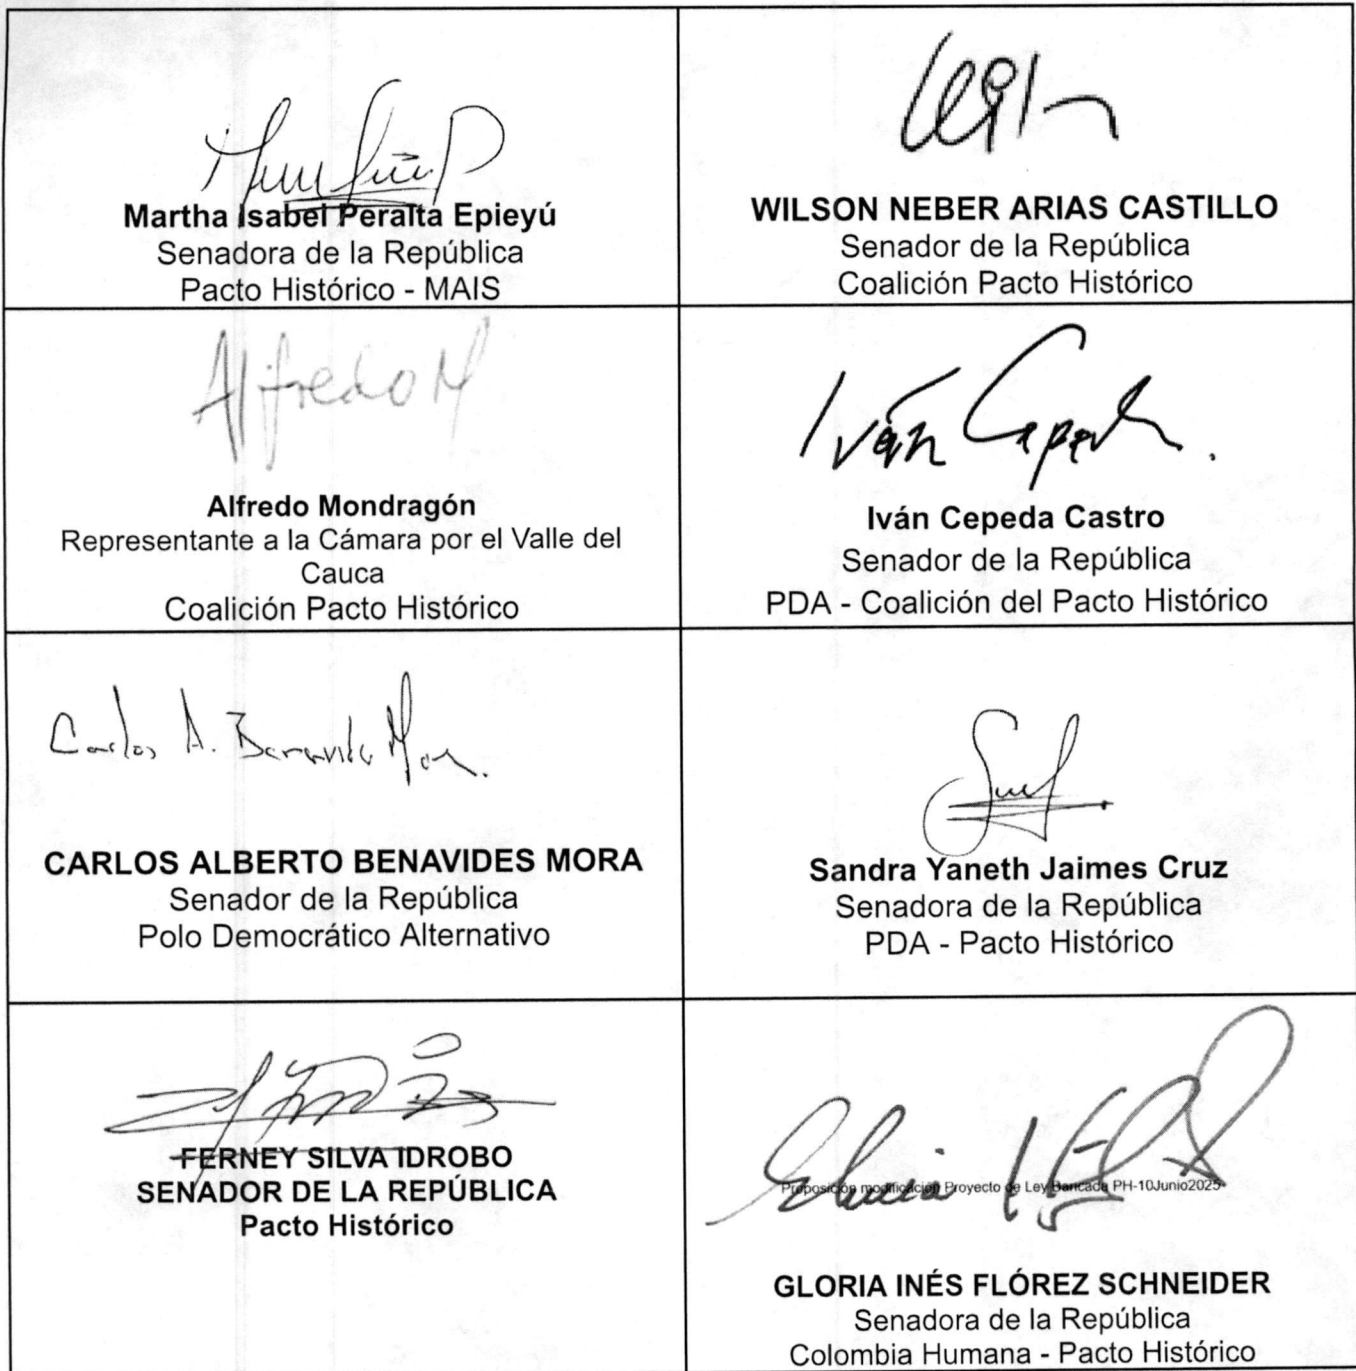 Martha Isabel Peralta Epieyú
Senadora de la República
Pacto Histórico - MAIS
WILSON NEBER ARIAS CASTILLO
Senador de la República
Coalición Pacto Histórico
Alfredo M
Alfredo Mondragón
Representante a la Cámara por el Valle del
Cauca
Coalición Pacto Histórico
Iván Cepeda
Iván Cepeda Castro
Senador de la República
PDA - Coalición del Pacto Histórico
Carlos A. Benavides Mora
CARLOS ALBERTO BENAVIDES MORA
Senador de la República
Polo Democrático Alternativo
Sandra Yaneth Jaimes Cruz
Senadora de la República
PDA - Pacto Histórico
FERNEY SILVA IDROBO
SENADOR DE LA REPÚBLICA
Pacto Histórico
Proposición modificación Proyecto de Ley Bancada PH-10Junio2025
GLORIA INÉS FLÓREZ SCHNEIDER
Senadora de la República
Colombia Humana - Pacto Histórico